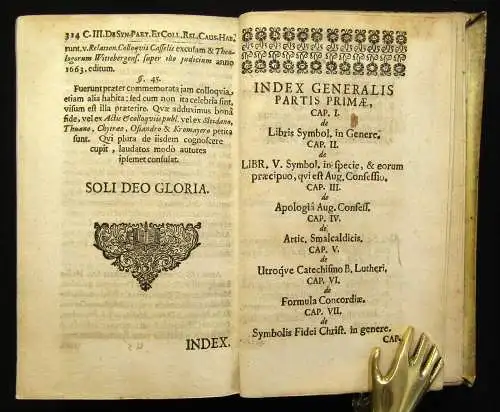 324 C. III. DE SYN. PART. ET COLL. REL. CAUS. HAB.
runt. v. Relation. Colloquii Casselis excusam & Theo-
logorum Wittebergens. super ibo judicium anno
1663. editum.
§. 45.
Fuerunt præter commemorata jam colloquia,
etiam alia habita: sed cum non ita celebria sint,
visum est illa præterire. Quæ adduximus bona
fide, vel ex Actis & colloquiis publ. vel ex Sleidano,
Thuano, Chytræo, Osiandro & Kromayero petita
sunt. Qvi plura de iisdem cognoscere
cupit, laudatos modò autores
ipsemet consulat.
SOLI DEO GLORIA.
INDEX.
INDEX GENERALIS
PARTIS PRIMÆ,
CAP. I.
de
Libris Symbol. in Genere.
CAP. II.
de
LIBR. V. Symbol. in specie, & eorum
præcipuo, qvi est Aug. Confessio.
CAP. III.
de
Apologiâ Aug. Confess.
CAP. IV.
de
Artic. Smalcaldicis.
CAP. V.
de
Utroqve Catechismo B. Lutheri.
CAP. VI.
de
Formula Concordiæ.
CAP. VII.
de
Symbolis Fidei Christ. in genere.
CAP.